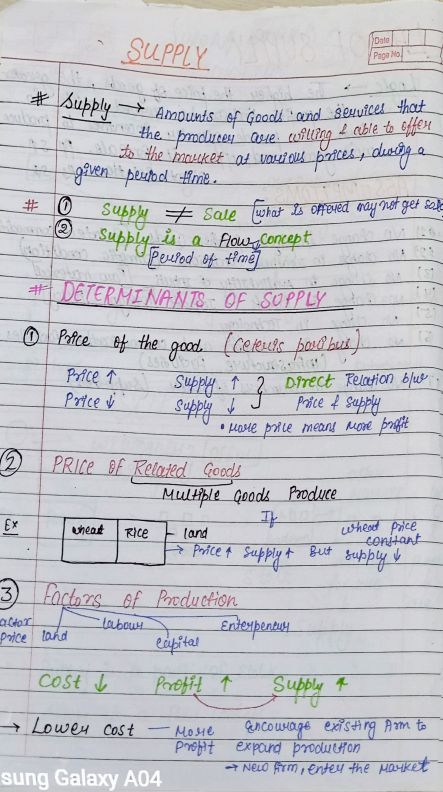 Date
Page No.
SUPPLY
# Supply → Amounts of Goods and services that
the producer are willing & able to offer
to the market at various prices, during a
given period time.
# ① Supply ≠ Sale [what is offered may not get sale
② Supply is a Flow Concept
[Period of time]
# DETERMINANTS OF SUPPLY
① Price of the good (Ceteris paribus)
Price ↑ Supply ↑ } Direct Relation b/w
Price ↓ Supply ↓ Price & Supply
• More price means more profit
② PRICE OF Related Goods
Multiple Goods Produce
If
Ex wheat RICE land wheat price
constant
→ Price ↑ Supply ↑ But supply ↓
③ Factors of Production
actor
price land labour capital Enterpeneur
COST ↓ Profit ↑ Supply ↑
→ Lower cost — More encourage existing firm to
Profit expand production
→ New firm, enter the market
sung Galaxy A04